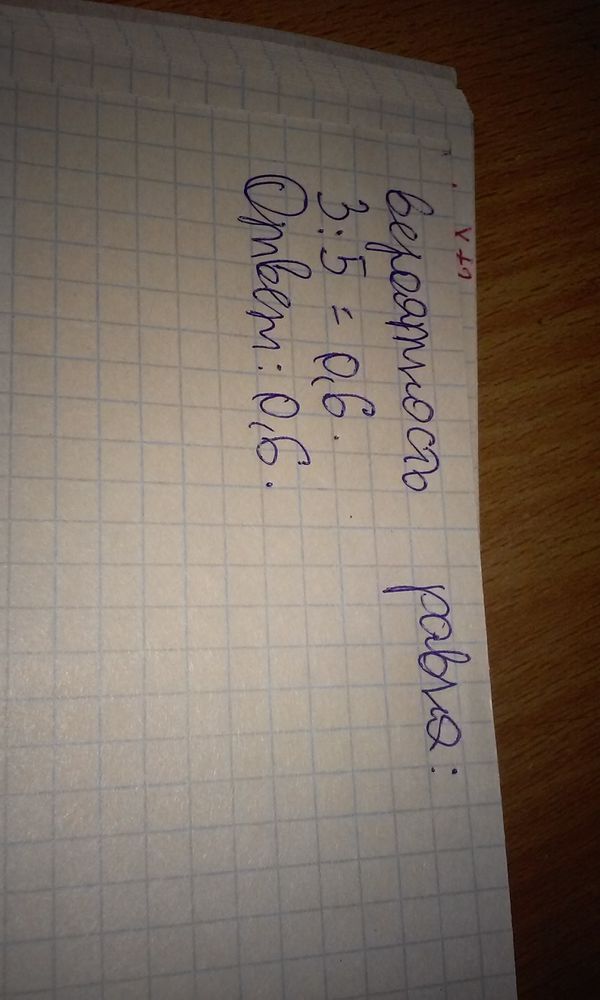 вероятность равна:
3:5 = 0,6.
Ответ: 0,6.